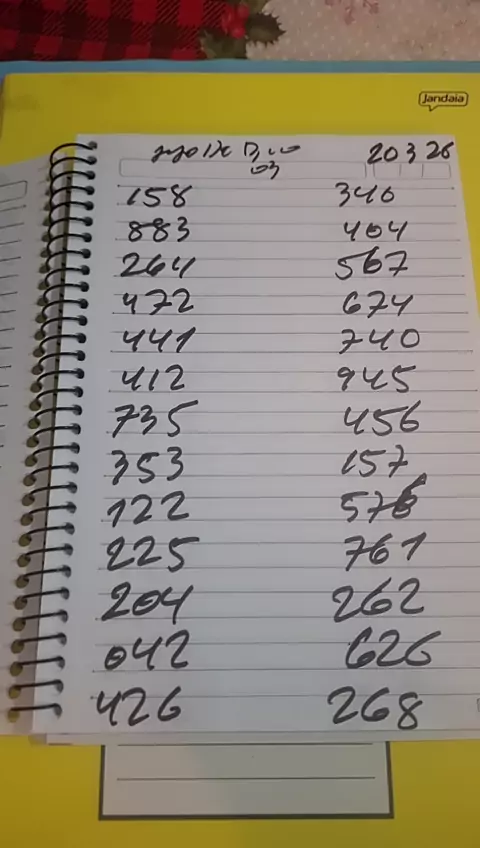 Jandaia
20 3 26
03
158 340
883 404
264 567
472 674
441 740
412 945
735 456
353 157
122 576
225 761
204 262
042 626
426 268